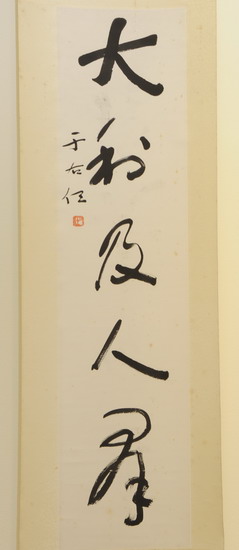 大利及人群
于右任